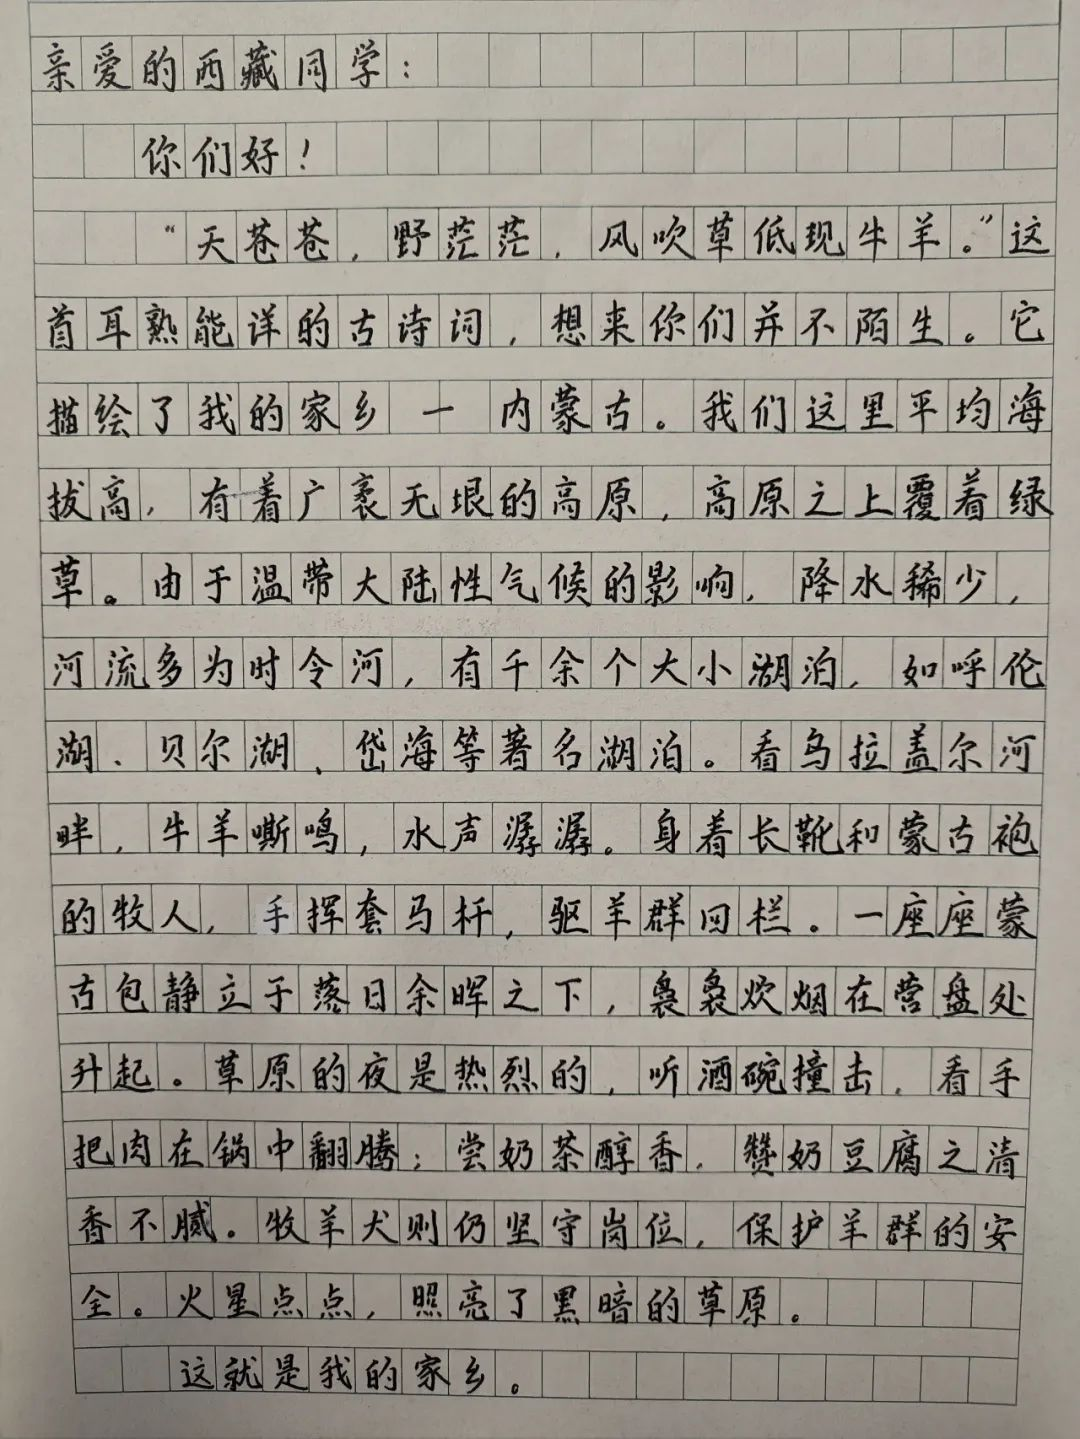 亲爱的西藏同学：
你们好！
“天苍苍，野茫茫，风吹草低现牛羊。”这
首耳熟能详的古诗词，想来你们并不陌生。它
描绘了我的家乡一内蒙古。我们这里平均海
拔高，有着广袤无垠的高原，高原之上覆着绿
草。由于温带大陆性气候的影响，降水稀少，
河流多为时令河，有千余个大小湖泊，如呼伦
湖、贝尔湖、岱海等著名湖泊。看乌拉盖尔河
畔，牛羊嘶鸣，水声潺潺。身着长靴和蒙古袍
的牧人，手挥套马杆，驱羊群回栏。一座座蒙
古包静立于落日余晖之下，袅袅炊烟在营盘处
升起。草原的夜是热烈的，听酒碗撞击，看手
把肉在锅中翻腾；尝奶茶醇香，赞奶豆腐之清
香不腻。牧羊犬则仍坚守岗位，保护羊群的安
全。火星点点，照亮了黑暗的草原。
这就是我的家乡。